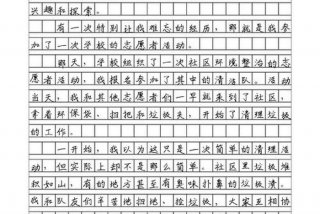 兴趣和探索。
有一次特别让我难忘的经历，那就是我参
加了一次学校的志愿者活动。
那天，学校组织了一次社区环境整治的志
愿者活动，我报名参加了其中的清洁队。活动
当天，我和其他志愿者们一早就来到了社区，
拿着环保袋、扫把和垃圾夹，开始了清理垃圾
的工作。
一开始，我以为这只是一次简单的清理活
动，但实际上却不是那么简单。社区里垃圾堆
积如山，有的地方甚至有臭味扑鼻的垃圾渍。
我和队友们弯着腰、捡垃圾，大家互相协